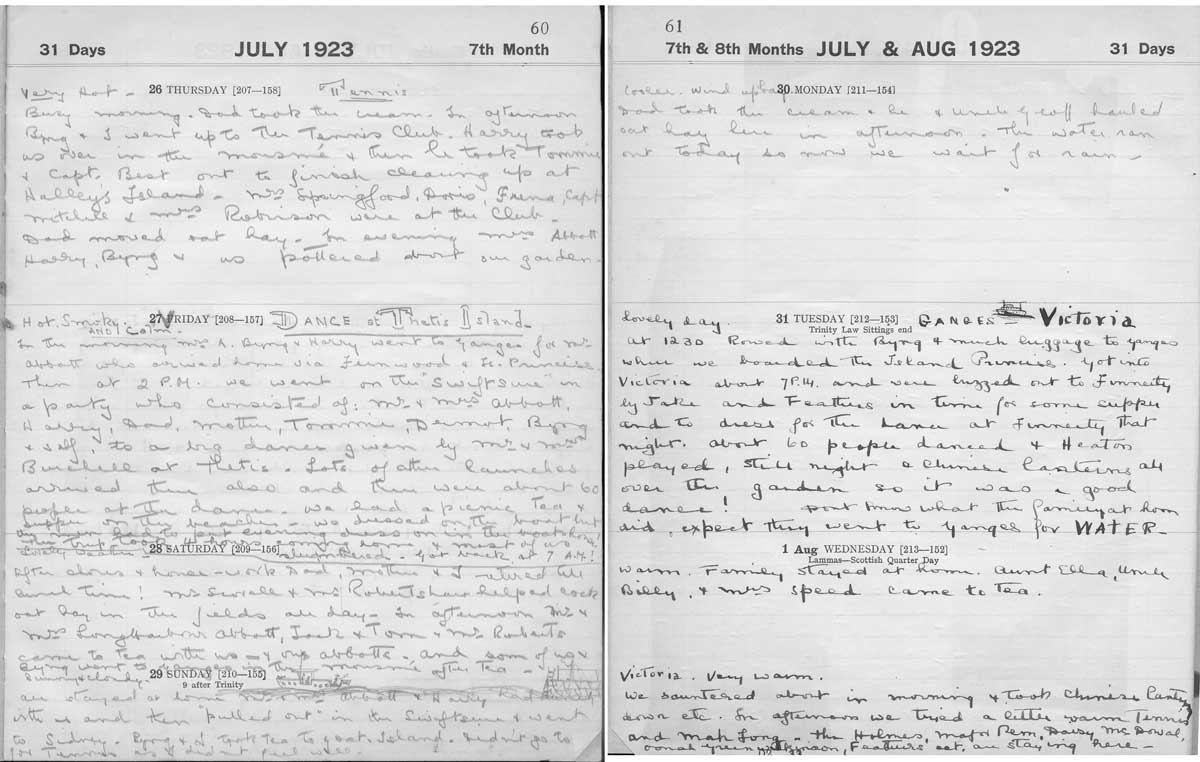 60
31 Days JULY 1923 7th Month
Very Hot - 26 THURSDAY [207—158] Tennis
Busy morning. Dad took the cream. In afternoon
Byng & I went up to the Tennis Club. Harry took
us over in the mousmé & then he took Tommie
& Capt. Best out to finish clearing up at
Halley's Island. Mrs Springford, Doris, Capt
Mitchell & Mrs Robinson were at the Club.
Dad moved oat hay. In evening Mrs Abbott
Harry, Byng & us pottered about our garden.
Hot, Smoky and Calm. 27 FRIDAY [208—157] DANCE at Thetis Island
In the morning A. Byng & Harry went to Ganges for Mr
Abbott who arrived home via Fernwood & Is. Princess.
Then at 2 P.M. we went on the "Swiftsure" in
a party who consisted of: Mr & Mrs Abbott,
Harry, Dad, Mother, Tommie, Dermot, Byng
& self, to a big dance given by Mr & Mrs
Burchell at Thetis. Lots of other launches
arrived there also and there were about 60
people at the dance. We had a picnic Tea &
supper on the beach - we dressed on the boat but
to put evening dress on in the
home & most of us
slumbered. Got back at 7 A.M!
28 SATURDAY [209—156]
After chores & house work Dad, Mother & I retired till
lunch time! Mr Sewell & Mr Robertshaw helped cock
oat hay in the fields all day. In afternoon Mr &
Mrs Longharbour Abbott, Jack & Tom & Mr Roberts
came to tea with us & our Abbotts. and some of us &
Byng went to Ganges in the mousmé after tea
Sunny & cloudy. 29 SUNDAY [210—155]
9 after Trinity
All stayed at home. Abbott & Harry had
with us and then "pulled out" in the Swiftsure & went
to Sidney. Byng & I took tea to Goat Island. Didn't go to
for Tennis as I didn't feel well.
61
7th & 8th Months JULY & AUG 1923 31 Days
Cooler. Wind up bay 30 MONDAY [211—154]
Dad took the cream & he & Uncle Geoff hauled
oat hay here in afternoon. The water ran
out today so now we wait for rain -
Lovely day. 31 TUESDAY [212—153] GANGES — Victoria
Trinity Law Sittings end
At 1230 Rowed with Byng & much luggage to Ganges
where we boarded the Island Princess. Got into
Victoria about 7 P.M. and were buzzed out to Finnerty
by Jake and Feathers in time for some supper
and to dress for the dance at Finnerty that
night. About 60 people danced & Heaton
played, Still night & Chinese lanterns all
over the garden so it was a good
dance! Dont know what the family at home
did, expect they went to Ganges for WATER -
1 Aug WEDNESDAY [213—152]
Lammas—Scottish Quarter Day
Warm. Family stayed at home. Aunt Ella, Uncle
Billy, & Mrs Speed came to tea.
Victoria. Very warm.
We sauntered about in morning & took Chinese lanterns
down etc. In afternoon we tried a little warm Tennis
and Mah Jong - the Holmes, Major Rem, Daisy McDowal,
Green, Feathers, all staying here -